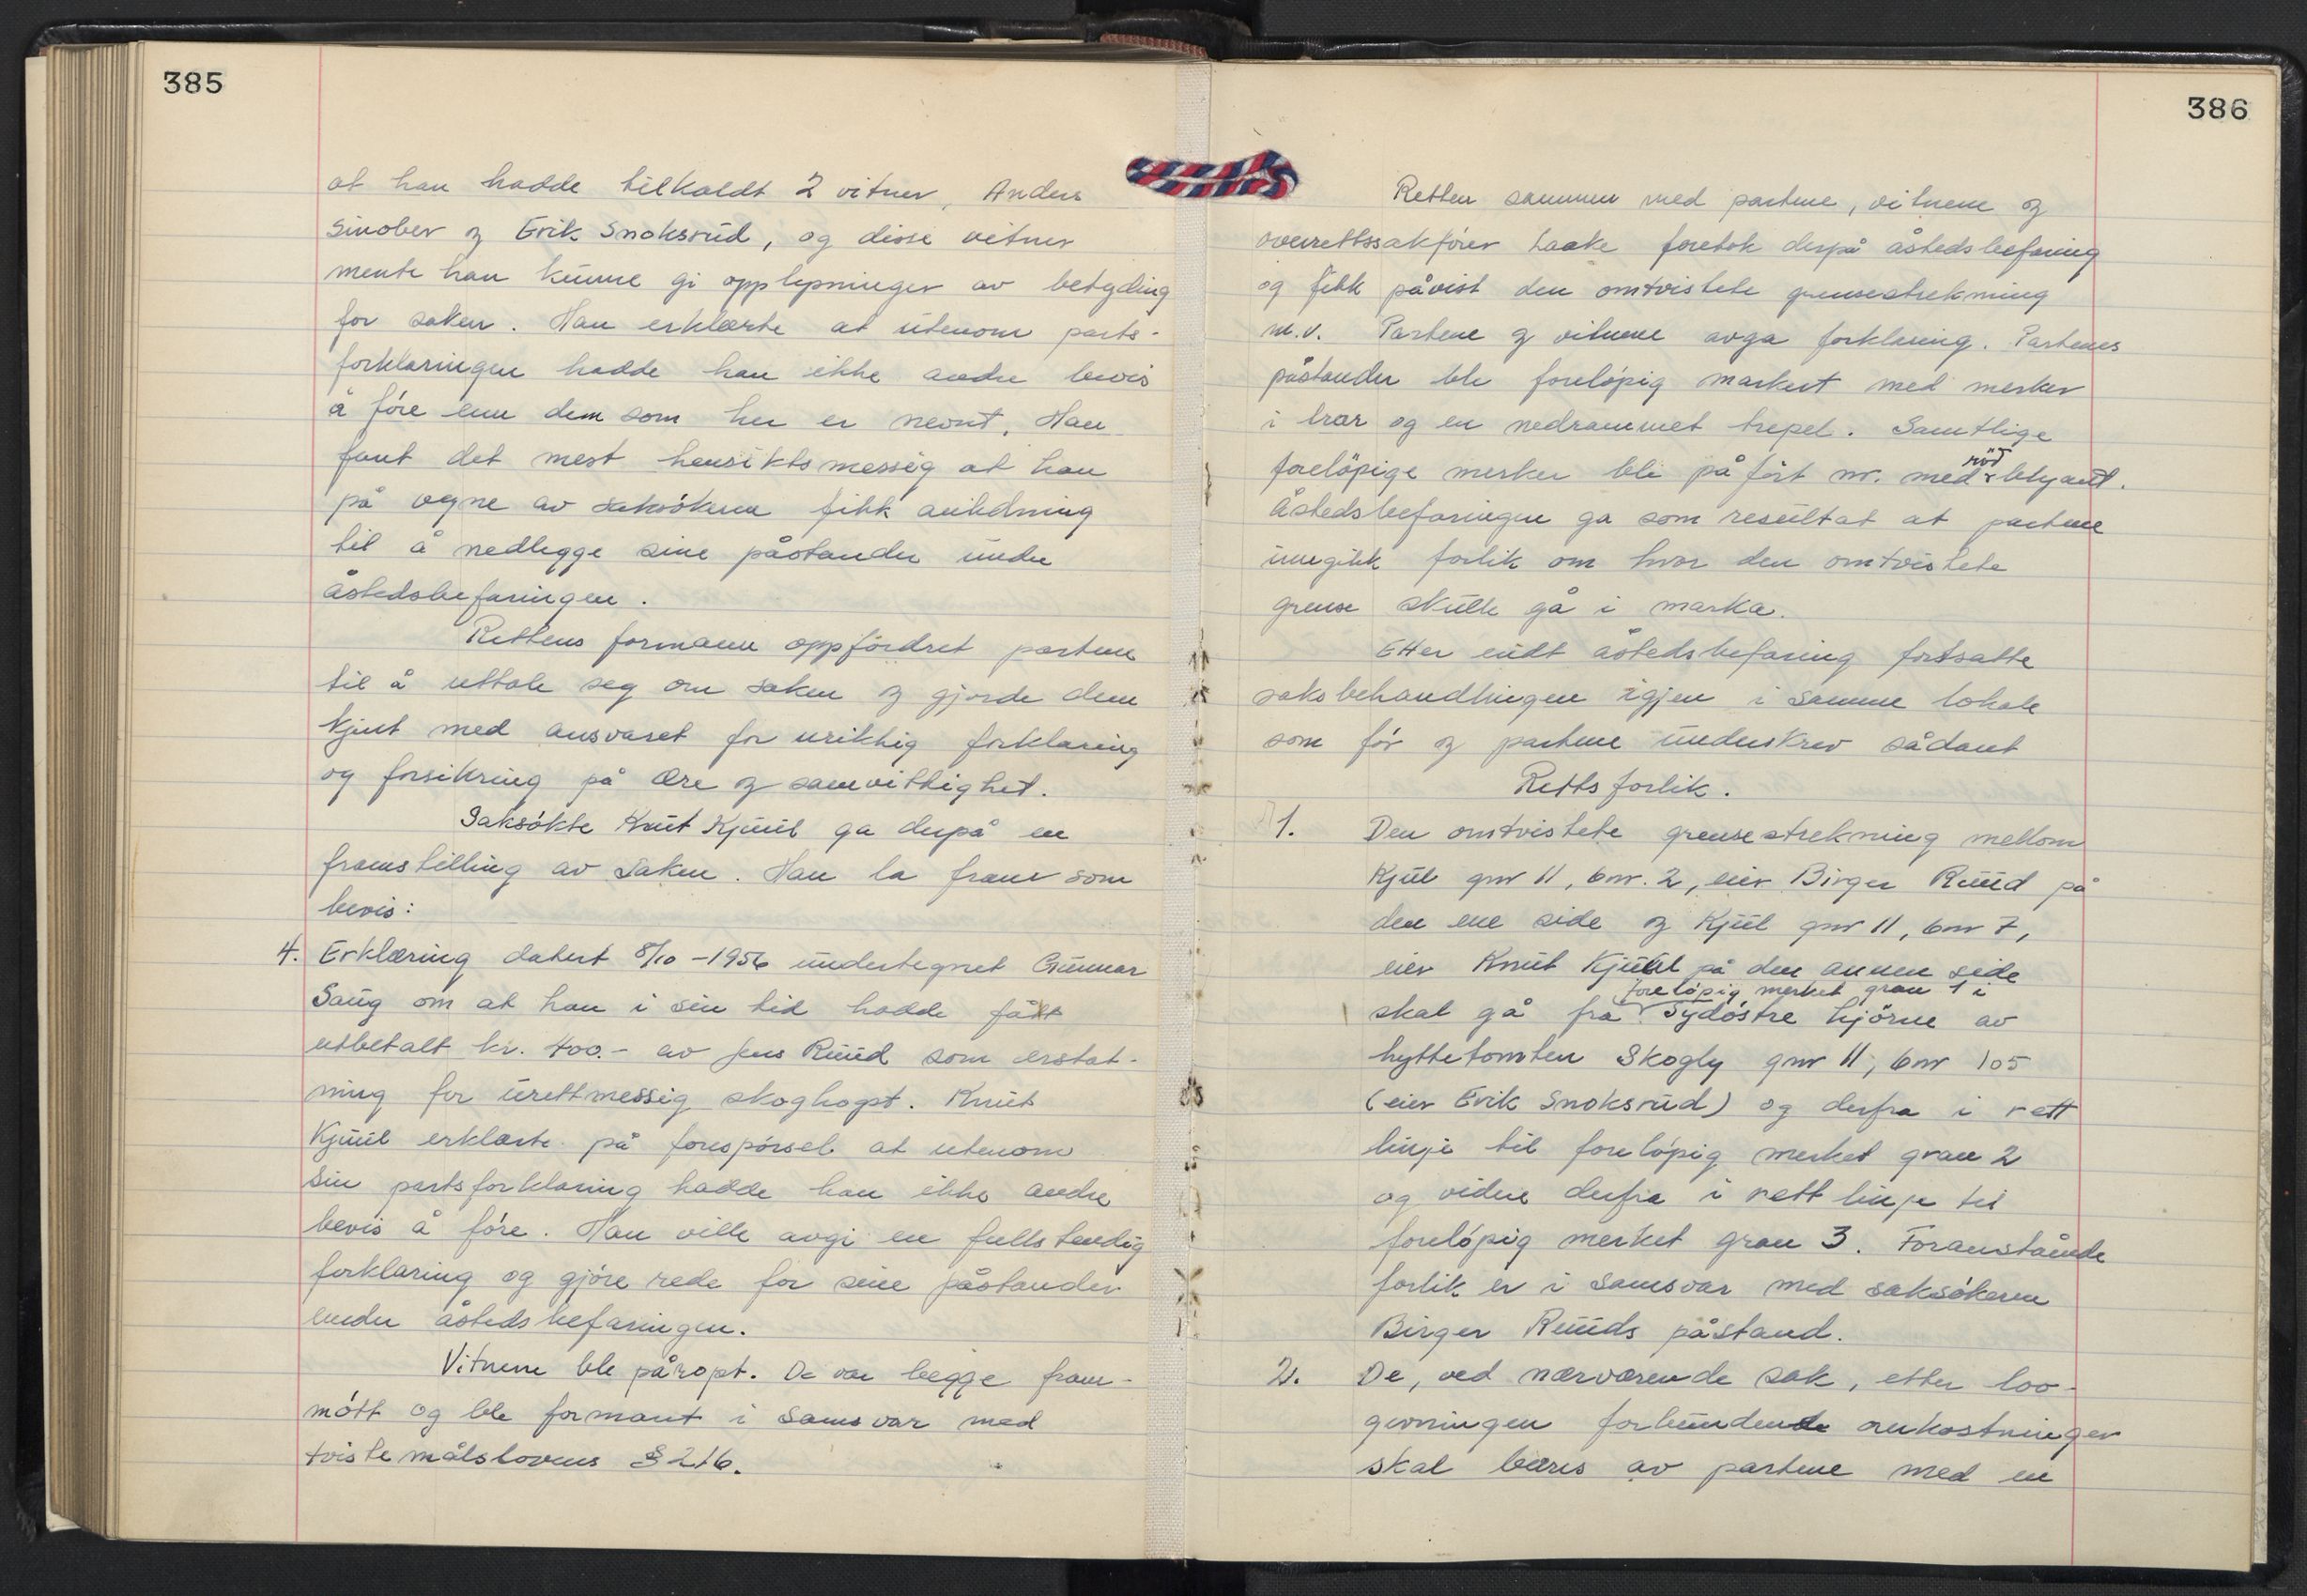 385
at han hadde tilkaldt 2 vitner, Anders
Sinober og Erik Snoksrud, og disse vitner
mente han kunne gi opplysninger av betyding
for saken. Han erklærte at utenom parts-
forklaringen hadde han ikke andre bevis
å føre enn dem som her er nevnt. Han
fant det mest hensiktsmessig at han
på vegne av saksøkeren fikk anledning
til å nedlegge sine påstander under
åstedsbefaringen.
Rettens formann oppfordret partene
til å uttale seg om saken og gjorde dem
kjent med ansvaret for uriktig forklaring
og forsikring på ære og samvittighet.
Saksøkte Knut Kjuul ga derpå en
framstilling av saken. Han la fram som
bevis:
4. Erklæring datert 8/10-1956 undertegnet Gunnar
Saug om at han i sin tid hadde fått
utbetalt kr. 400.- av Jens Ruud som erstat-
ning for urettmessig skoghogst. Knut
Kjuul erklærte på forespørsel at utenom
sin partsforklaring hadde han ikke andre
bevis å føre. Han ville avgi en fullstendig
forklaring og gjøre rede for sine påstander
under åstedsbefaringen.
Vitnene ble påropt. De var begge fram-
møtt og ble formant i samsvar med
tvistemålslovens § 216.
386
Retten sammen med partene, vitnene og
overrettssakfører Laake foretok derpå åstedsbefaring
og fikk påvist den omtvistete grensestrekning
m.v. Partene og vitnene avga forklaring. Partenes
påstander ble foreløpig markert med merker
i trær og en nedrammet trepel. Samtlige
foreløpige merker ble påført nr. med rød blyant.
Åstedsbefaringen ga som resultat at partene
inngikk forlik om hvor den omtvistete
grense skulle gå i marka.
Etter endt åstedsbefaring fortsatte
saksbehandlingen igjen i samme lokale
som før og partene underskrev sådant
Rettsforlik.
1. Den omtvistete grensestrekning mellom
Kjul gnr 11, bnr. 2, eier Birger Ruud på
den ene side og Kjul gnr 11, bnr 7,
eier Knut Kjuul på den annen side
skal gå fra foreløpig merket gran 1 i sydøstre hjørne av
hyttetomten Skogly gnr 11, bnr 105
(eier Erik Snoksrud) og derfra i rett
linje til foreløpig merket gran 2
og videre derfra i rett linje til
foreløpig merket gran 3. Foranstående
forlik er i samsvar med saksøkeren
Birger Ruuds påstand.
2. De, ved nærværende sak, etter lov-
givningen forbundende omkostninger
skal bæres av partene med en